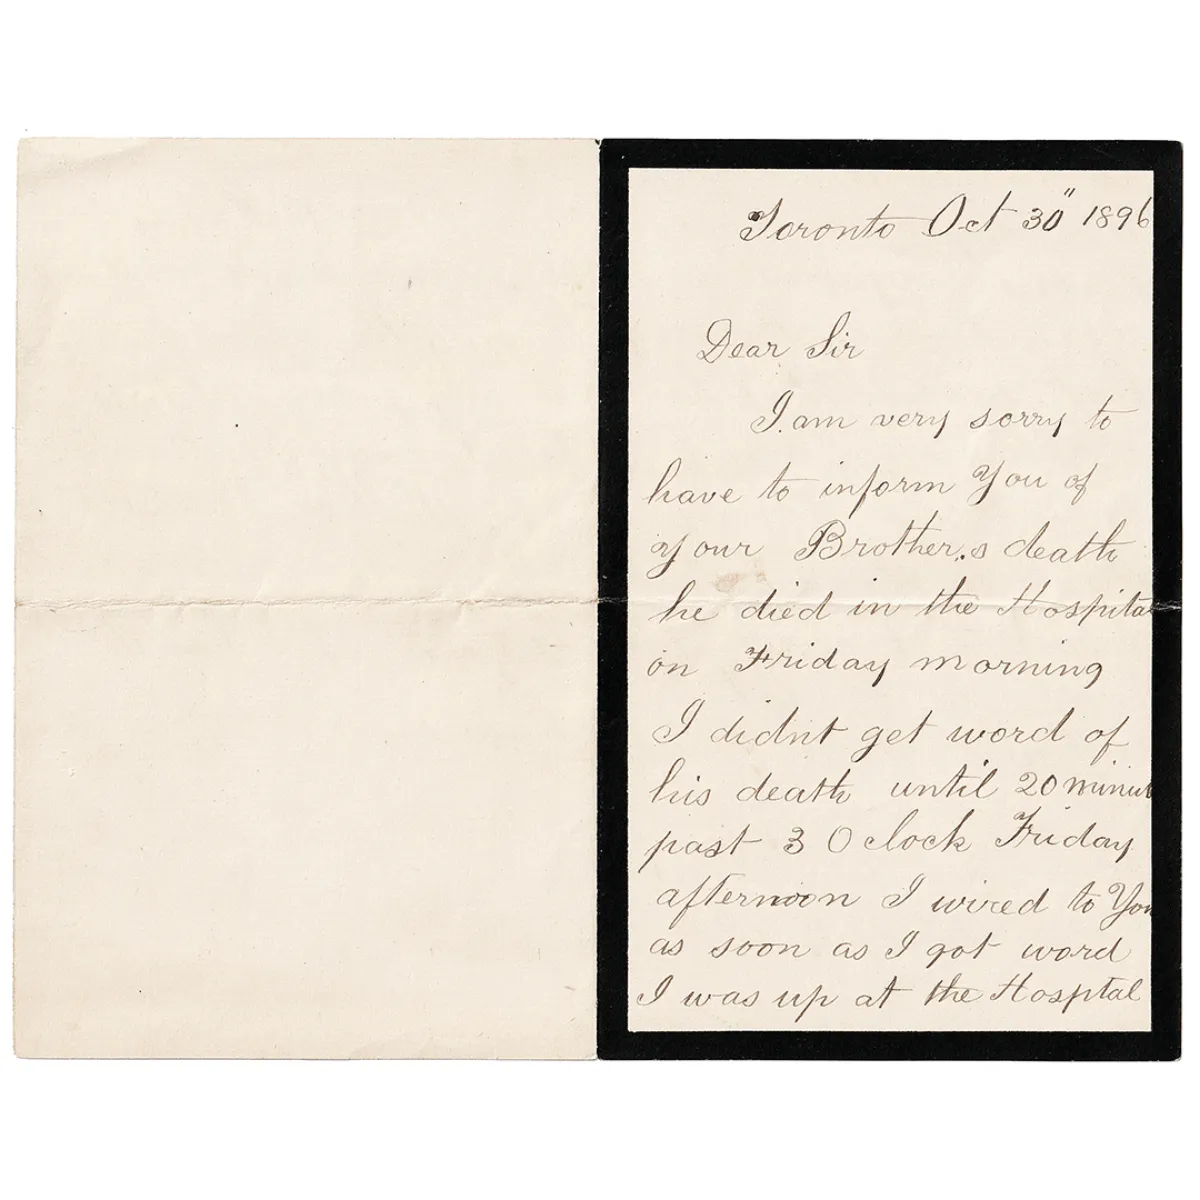 Toronto Oct 30" 1896
Dear Sir
I am very sorry to
have to inform You of
your Brother,s death
he died in the Hospital
on Friday morning
I didnt get word of
his death until 20 minut
past 3 O clock Friday
afternoon I wired to You
as soon as I got word
I was up at the Hosptal